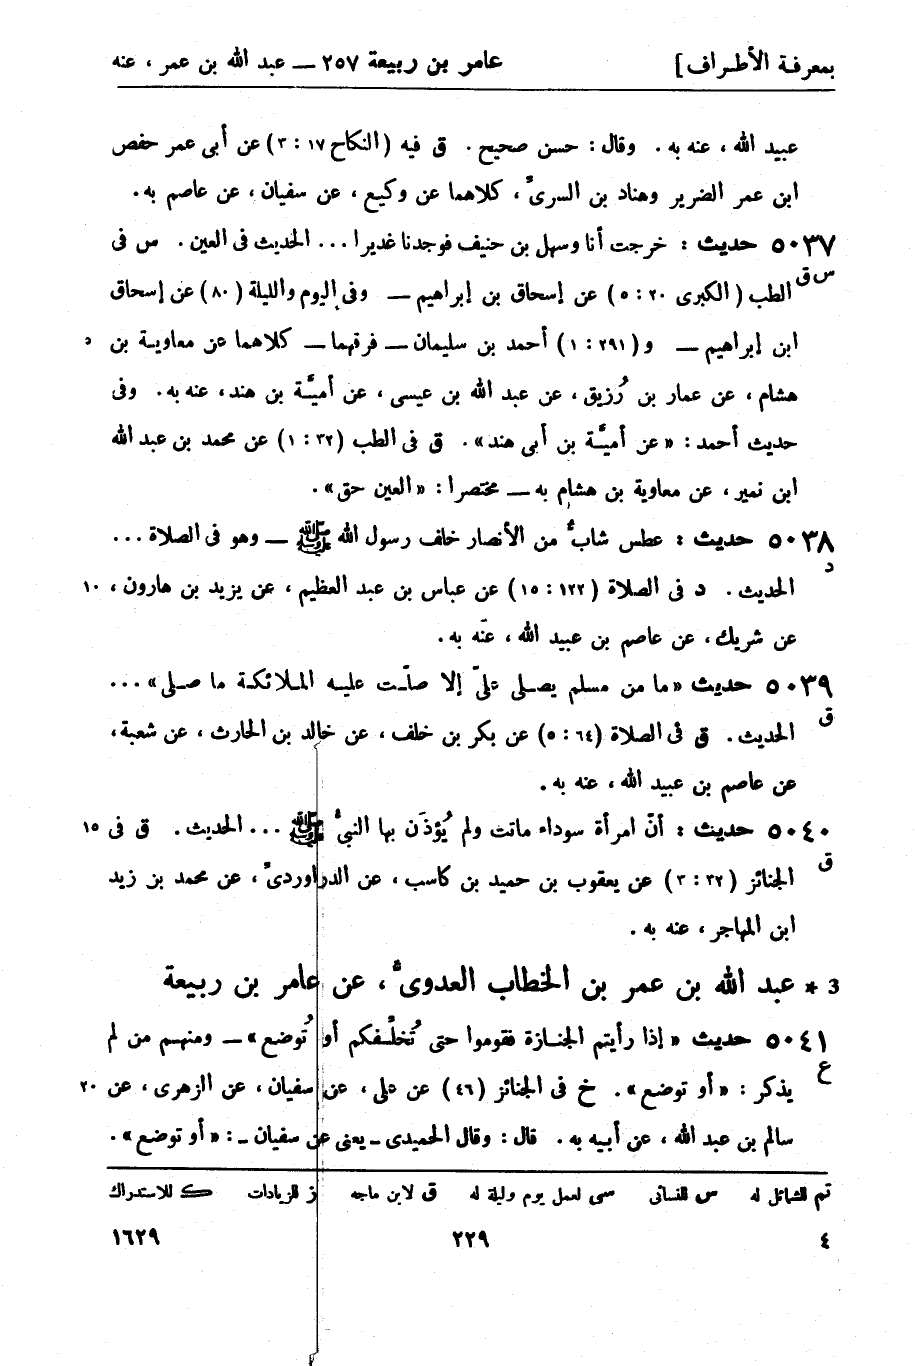 بمعرفة الأطراف] عامر بن ربيعة ٢٥٧ — عبد الله بن عمر ، عنه
عبيد الله ، عنه به . وقال : حسن صحيح . ق فيه ( النكاح ١٧ : ٣ ) عن أبى عمر حفص
ابن عمر الضرير وهناد بن السرىّ ، كلاهما عن وكيع ، عن سفيان ، عن عاصم به .
٥٠٣٧ حديث : خرجت أنا وسهل بن حنيف فوجدنا غديرا ... الحديث فى العين . س فى
س ق
الطب ( الكبرى ٢٠ : ٥ ) عن إسحاق بن إبراهيم — وفى اليوم والليلة ( ٨٠ ) عن إسحاق
ابن إبراهيم — و ( ٢٩١ : ١ ) أحمد بن سليمان — فرقهما — كلاهما عن معاوية بن ٥
هشام ، عن عمار بن رُزيق ، عن عبد الله بن عيسى ، عن أميَّة بن هند ، عنه به . وفى
حديث أحمد : « عن أميَّة بن أبى هند » . ق فى الطب ( ٣٢ : ١ ) عن محمد بن عبد الله
ابن نمير ، عن معاوية بن هشام به — مختصرا : « العين حق » .
٥٠٣٨ حديث : عطس شابٌّ من الأنصار خلف رسول الله ﷺ — وهو فى الصلاة ...
د
الحديث . د فى الصلاة ( ١٢٢ : ١٥ ) عن عباس بن عبد العظيم ، عن يزيد بن هارون ، ١٠
عن شريك ، عن عاصم بن عبيد الله ، عنه به .
٥٠٣٩ حديث « ما من مسلم يصلى علىّ إلا صلّت عليه الملائكة ما صلى » ...
ق
الحديث . ق فى الصلاة ( ٦٤ : ٥ ) عن بكر بن خلف ، عن خالد بن الحارث ، عن شعبة ،
عن عاصم بن عبيد الله ، عنه به .
٥٠٤٠ حديث : أنّ امرأة سوداء ماتت ولم يُؤذَن بها النبىُّ ﷺ ... الحديث . ق فى ١٥
ق
الجنائز ( ٣٢ : ٣ ) عن يعقوب بن حميد بن كاسب ، عن الدراوردىّ ، عن محمد بن زيد
ابن المهاجر ، عنه به .
3 * عبد الله بن عمر بن الخطاب العدوىُّ ، عن عامر بن ربيعة
٥٠٤١ حديث « إذا رأيتم الجنازة فقوموا حتى تُخلِّفكم أو تُوضع » — ومنهم من لم
ع
يذكر : « أو توضع » . خ فى الجنائز ( ٤٦ ) عن على ، عن سفيان ، عن الزهرى ، عن ٢٠
سالم بن عبد الله ، عن أبيه به . قال : وقال الحميدى ـ يعنى عن سفيان ـ : « أو توضع » .
تم للشمائل له س للنسائى سى لعمل يوم وليلة له ق لابن ماجه ز للزيادات ك للاستدراك
٤ ٢٢٩ ١٦٢٩